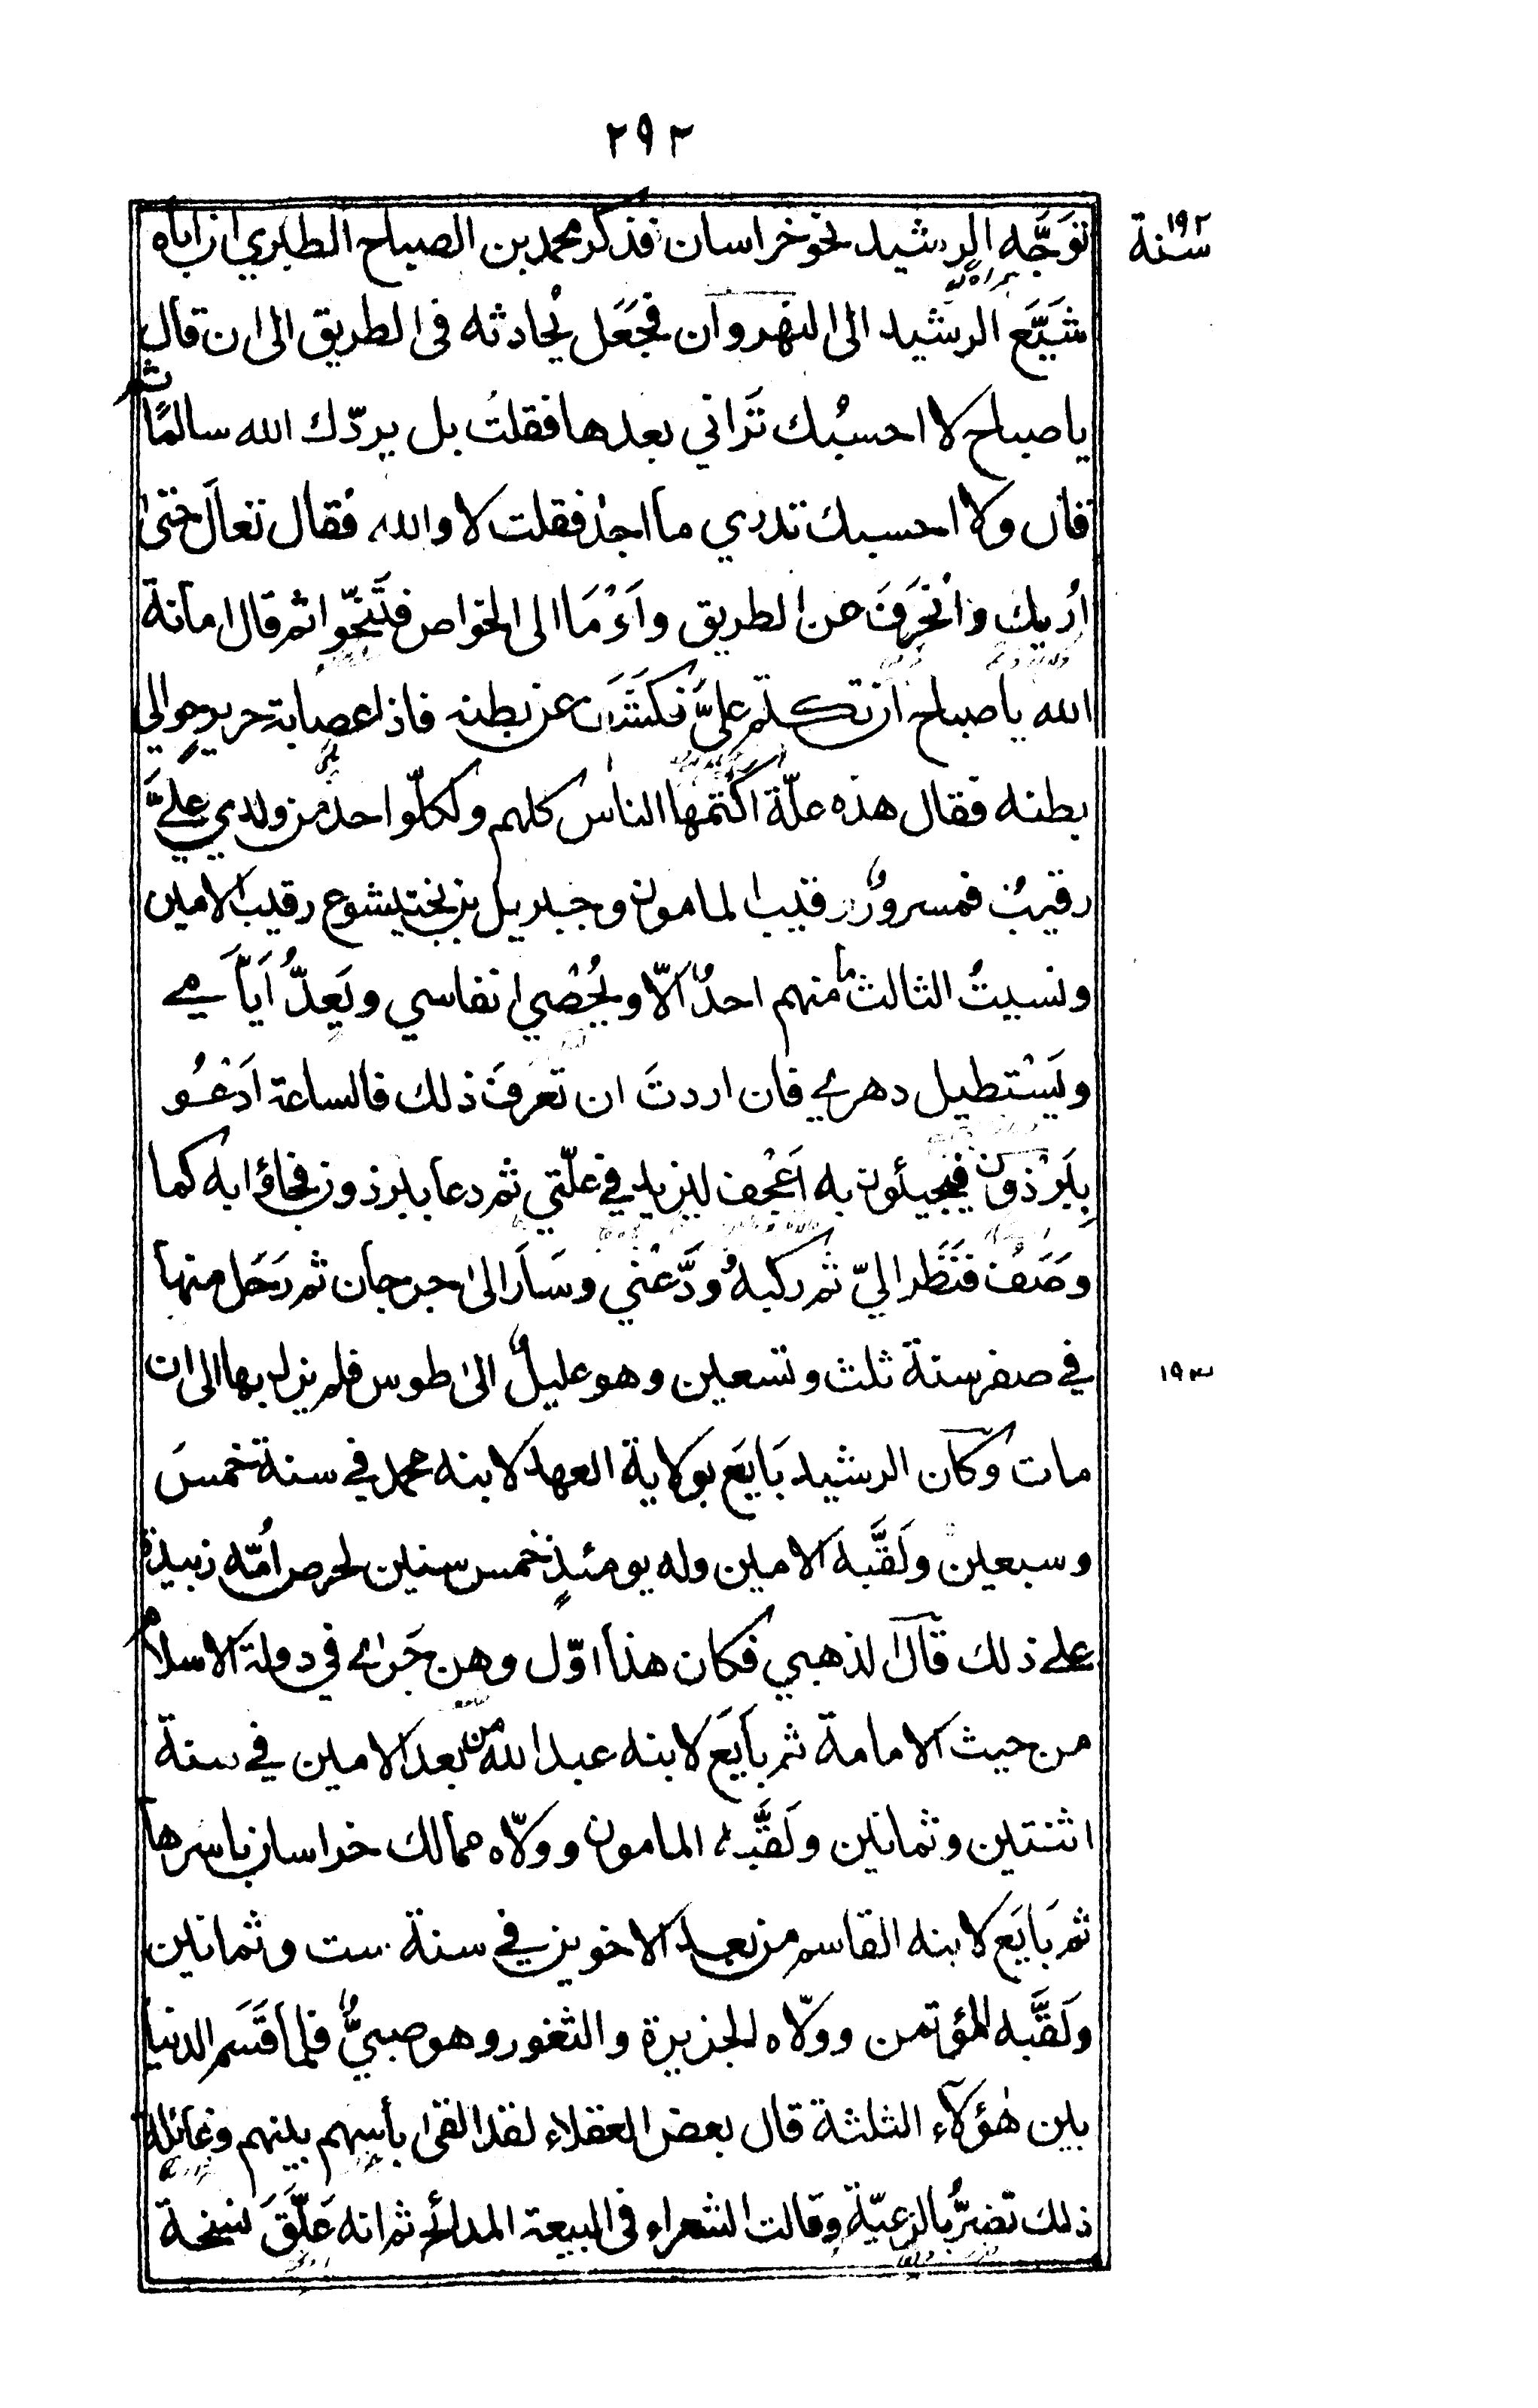 ٢٩٣
سنة ١٩٢
توَجَّه الرشيد نحو خراسان فذكر محمد بن الصباح الطبري ان اباه
شَيَّع الرشيد الى النهروان فجَعَل يُحادثه في الطريق الى ان قال
يا صباح لا احسبُك تَراني بعدها فقلتُ بل يردّك الله سالمًا ثم
قال ولا احسبك تدري ما اجد فقلت لا والله فقال تعالَ حتىٰ
اُريك وانْحَرَفَ عن الطريق واَوْمَا الى الخواص فتَنَحّوا ثم قال امانة
الله يا صباح ان تكتم عليَّ فكَشَفَ عن بطنه فاذا عصابة حريرٍ حوالي
بطنه فقال هذه علّة اكتمها الناس كلهم ولكلّ واحد من ولدي عليَّ
رقيبٌ فمسرورٌ رقيب المامون وجبريل بن بختيشوع رقيب الامين
ونسيتُ الثالث ما منهم احدٌ الّا ويُحْصي انفاسي ويَعدُّ اَيّاَمي
ويَسْتطيل دهري فان اردتَ ان تعرفَ ذلك فالساعة اَدْعُو
بِبِرْذَونٍ فيجيئون به اَعْجَف ليزيد في علّتي ثم دعا ببرذون فجاؤا به كما
وَصَفَ فنَظَر اليّ ثم ركبهُ ووَدَّعَني وسَاَر الىٰ جرجان ثم رَحَل منها
في صفر سنة ثلث وتسعين وهو عليلٌ الىٰ طوس فلم يزل بها الى ان
١٩٣
مات وكان الرشيد بَايَع بولاية العهد لابنه محمد في سنة خمسَ
وسبعين ولَقَّبه الامين وله يومئذٍ خمس سنين لحرص اُمّه زبيدة
على ذلك قال الذهبي فكان هذا اوّل وهن جَرى في دولة الاسلام
من حيث الامامة ثم بايَع لابنه عبد الله من بعد الامين في سنة
اثنتين وثمانين ولَقَّبه المامون وولّاه ممالك خراسان باسرها
ثم بَايَع لابنه القاسم من بعد الاخوين في سنة ست وثمانين
ولَقَّبه المؤتمن وولّاه الجزيرة والثغور وهو صبيٌّ فلما قَسَم الدنيا
بين هٰؤلاء الثلثة قال بعض العقلاء لقد القىٰ بأسهم بينهم وغائلة
ذلك تضرُّ بالرعيّة وقالت الشعراء في البيعة المدائح ثم انه عَلَّقَ نسخة